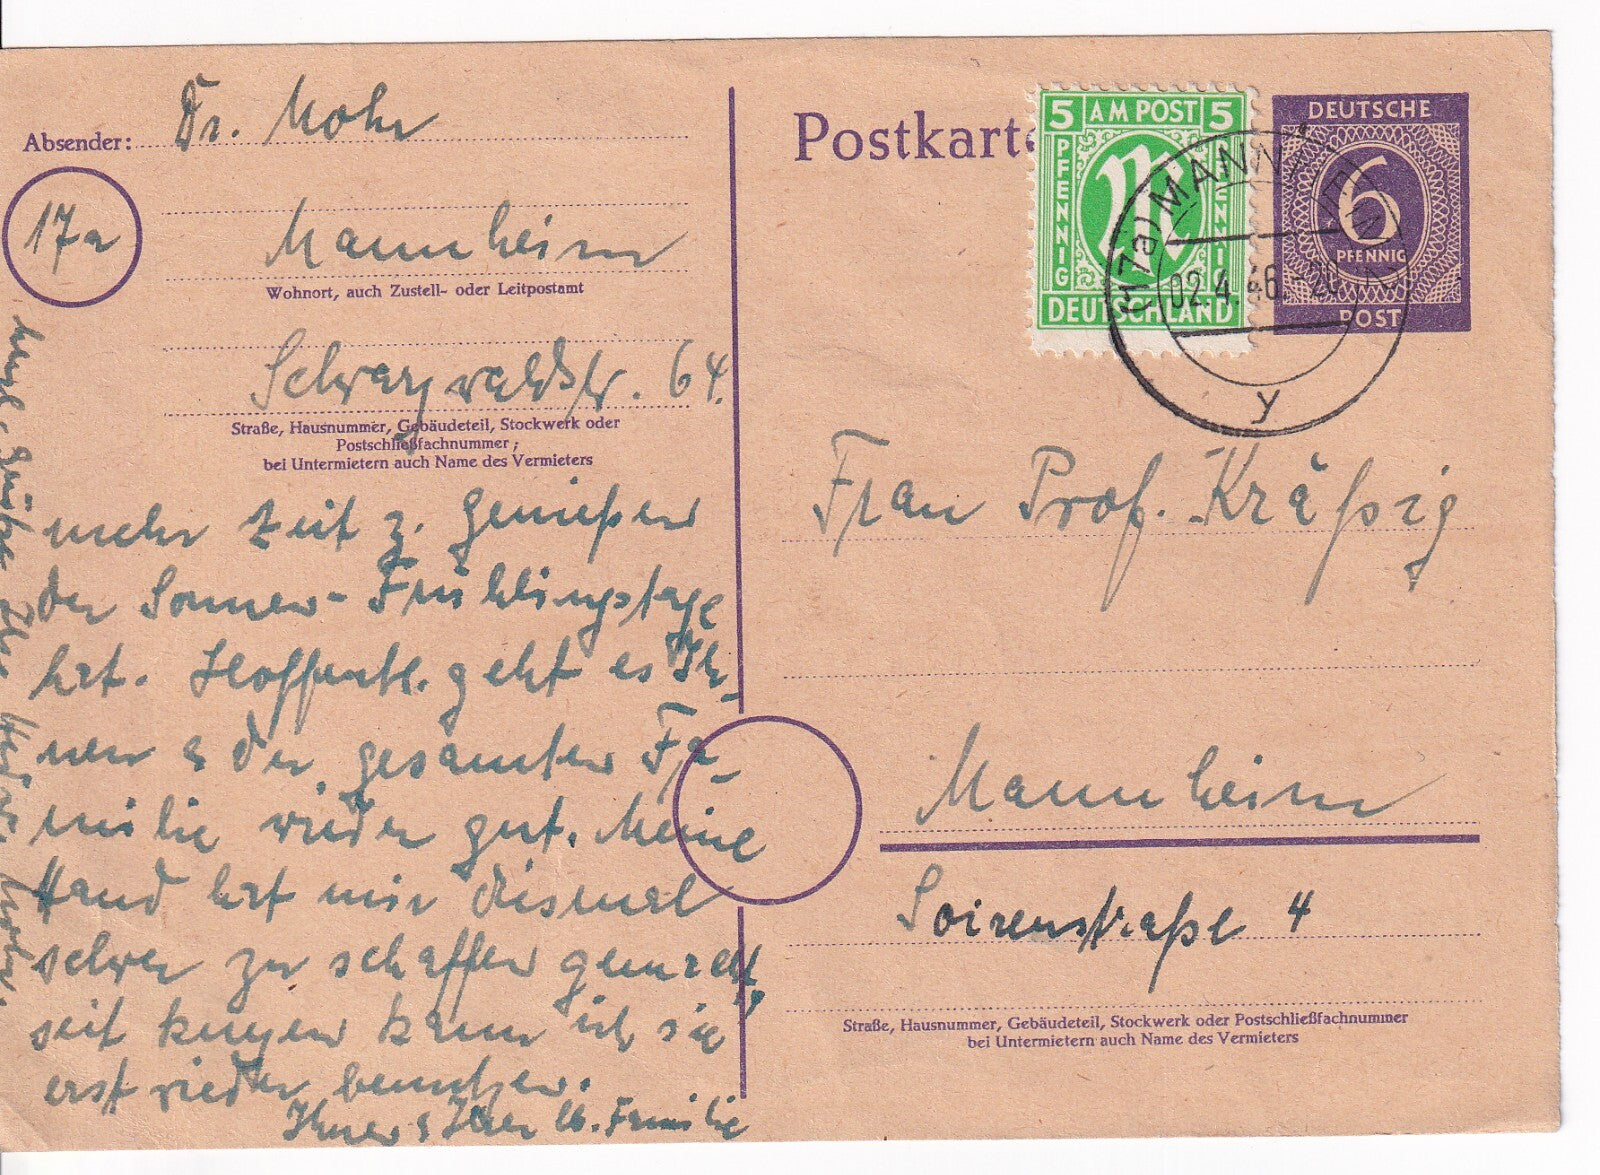 Absender: Dr. Mohr
17a
Mannheim
Wohnort, auch Zustell- oder Leitpostamt
Schwarzwaldstr. 64.
Straße, Hausnummer, Gebäudeteil, Stockwerk oder
Postschließfachnummer;
bei Untermietern auch Name des Vermieters
mehr Zeit z. Genießen
der Sonnen-Frühlingstage
hat. Hoffentl. geht es Ih-
nen & der gesamten Fa-
milie wieder gut. Meine
Hand hat mir diesmal
schwer zu schaffen gemacht,
seit kurzem kann ich sie
erst wieder benutzen.
Ihnen & Ihrer lb. Familie
herzl. Grüße Ihr
Postkarte
5 AM POST 5
PFENNIG
PFENNIG
M
DEUTSCHLAND
DEUTSCHE
6
PFENNIG
POST
(17a) MANNHEIM 2
02.4.46.-20
y
Frau Prof. Kräßig
Mannheim
Soirenstraße 4
Straße, Hausnummer, Gebäudeteil, Stockwerk oder Postschließfachnummer
bei Untermietern auch Name des Vermieters